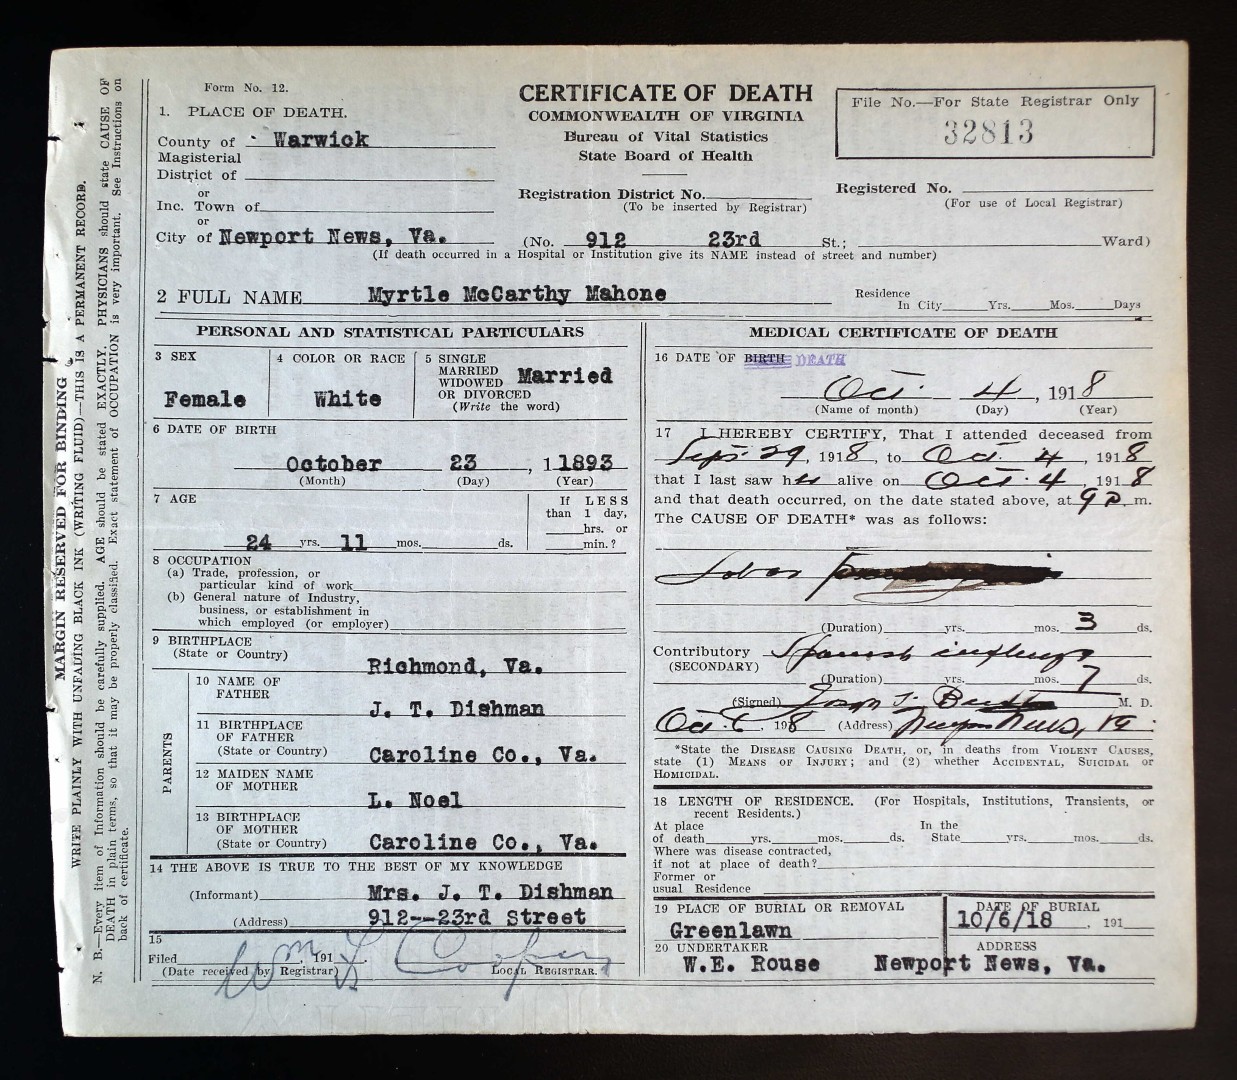 Form No. 12.
CERTIFICATE OF DEATH
COMMONWEALTH OF VIRGINIA
Bureau of Vital Statistics
State Board of Health
File No.—For State Registrar Only
32813
1. PLACE OF DEATH.
County of Warwick
Magisterial
District of
or
Inc. Town of
or
City of Newport News, Va.
Registration District No.
(To be inserted by Registrar)
Registered No.
(For use of Local Registrar)
(No. 912 23rd St.; Ward)
(If death occurred in a Hospital or Institution give its NAME instead of street and number)
2 FULL NAME Myrtle McCarthy Mahone
Residence
In City Yrs. Mos. Days
PERSONAL AND STATISTICAL PARTICULARS
3 SEX
Female
4 COLOR OR RACE
White
5 SINGLE
MARRIED
WIDOWED
OR DIVORCED
(Write the word)
Married
6 DATE OF BIRTH
October 23, 1 1893
(Month) (Day) (Year)
7 AGE
24 yrs. 11 mos. ds.
If LESS
than 1 day,
hrs. or
min.?
8 OCCUPATION
(a) Trade, profession, or
particular kind of work
(b) General nature of Industry,
business, or establishment in
which employed (or employer)
9 BIRTHPLACE
(State or Country)
Richmond, Va.
PARENTS
10 NAME OF
FATHER
J. T. Dishman
11 BIRTHPLACE
OF FATHER
(State or Country)
Caroline Co., Va.
12 MAIDEN NAME
OF MOTHER
L. Noel
13 BIRTHPLACE
OF MOTHER
(State or Country)
Caroline Co., Va.
14 THE ABOVE IS TRUE TO THE BEST OF MY KNOWLEDGE
(Informant) Mrs. J. T. Dishman
(Address) 912--23rd Street
15
Filed 191
(Date received by Registrar)
Wm L Cooper
LOCAL REGISTRAR.
MEDICAL CERTIFICATE OF DEATH
16 DATE OF BIRTH DEATH
Oct. 4, 1918
(Name of month) (Day) (Year)
17 I HEREBY CERTIFY, That I attended deceased from
Sept. 29, 1918, to Oct. 4, 1918
that I last saw her alive on Oct. 4, 1918
and that death occurred, on the date stated above, at 9 P. m.
The CAUSE OF DEATH* was as follows:
Lobar
(Duration) yrs. mos. 3 ds.
Contributory Spanish influenza
(SECONDARY)
(Duration) yrs. mos. 7 ds.
(Signed) M. D.
Oct. 6, 1918 (Address) Newport News, Va.
*State the DISEASE CAUSING DEATH, or, in deaths from VIOLENT CAUSES,
state (1) MEANS OF INJURY; and (2) whether ACCIDENTAL, SUICIDAL or
HOMICIDAL.
18 LENGTH OF RESIDENCE. (For Hospitals, Institutions, Transients, or
recent Residents.)
At place In the
of death yrs. mos. ds. State yrs. mos. ds.
Where was disease contracted,
if not at place of death?
Former or
usual Residence
19 PLACE OF BURIAL OR REMOVAL
Greenlawn
DATE OF BURIAL
10/6/18, 191
20 UNDERTAKER
W.E. Rouse
ADDRESS
Newport News, Va.
MARGIN RESERVED FOR BINDING
WRITE PLAINLY WITH UNFADING BLACK INK (WRITING FLUID)—THIS IS A PERMANENT RECORD.
N. B.—Every item of Information should be carefully supplied. AGE should be stated EXACTLY. PHYSICIANS should state CAUSE OF
DEATH in plain terms, so that it may be properly classified. Exact statement of OCCUPATION is very important. See Instructions on
back of certificate.